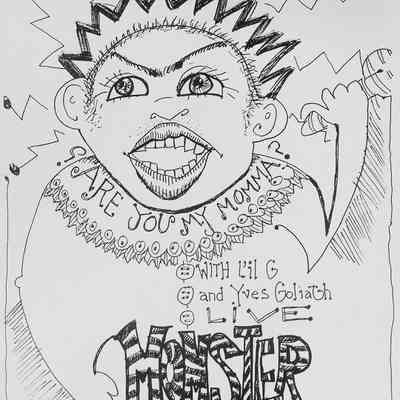 ¿ARE YOU MY MOMMA?
WITH L'iL G
and Yves Goliath
LiVE
MOMSTER